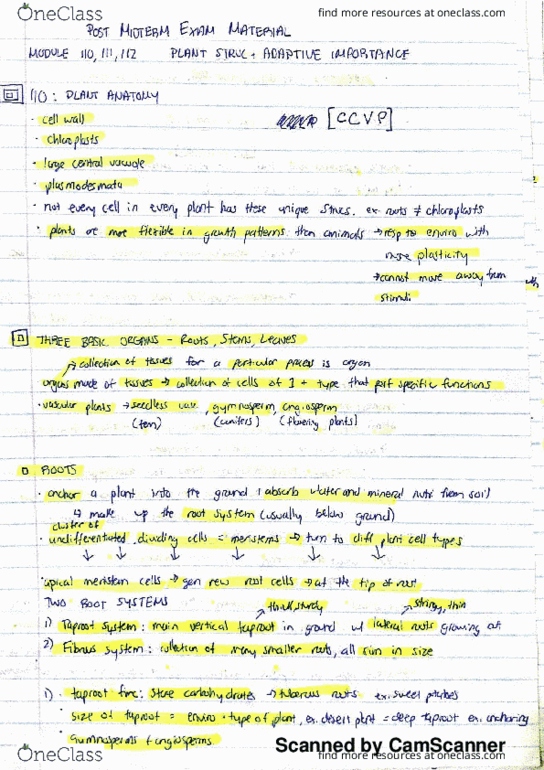 OneClass
find more resources at oneclass.com
POST MIDTERM EXAM MATERIAL
MODULE 110, 111, 112 PLANT STRUC + ADAPTIVE IMPORTANCE
110: PLANT ANATOMY
· cell wall
[CCVP]
· chloroplasts
· large central vacuole
· plasmodesmata
· not every cell in every plant has these unique strucs. ex. roots ≠ chloroplasts
· plants are more flexible in growth patterns than animals → resp to enviro with
more plasticity
→ cannot move away from
stimuli
THREE BASIC ORGANS - ROOTS, STEMS, LEAVES
↗ collection of tissues for a particular process is organ
organs made of tissues → collection of cells of 1 + type that perf specific functions
· vascular plants → seedless vasc, gymnosperm, angiosperm
(fern) (conifers) (flowering plants)
ROOTS
· anchor a plant into the ground + absorb water and mineral nutri from soil
↳ make up the root system (usually below ground)
cluster of
undifferentiated, dividing cells = meristems → turn to diff plant cell types
↓ ↓ ↓ ↓ ↓ ↓
· apical meristem cells → gen new root cells → at the tip of root
TWO ROOT SYSTEMS
thick, sturdy
stringy, thin
1) Taproot system: main vertical taproot in ground w/ lateral roots growing off
2) Fibrous system: collection of many smaller roots, all sim in size
1) · taproot func: store carbohydrates → tuberous roots ex. sweet potatoes
· size of taproot = enviro + type of plant, ex. desert plant = deep taproot ex. anchoring
· gymnosperms + angiosperms
OneClass
Scanned by CamScanner
find more resources at oneclass.com